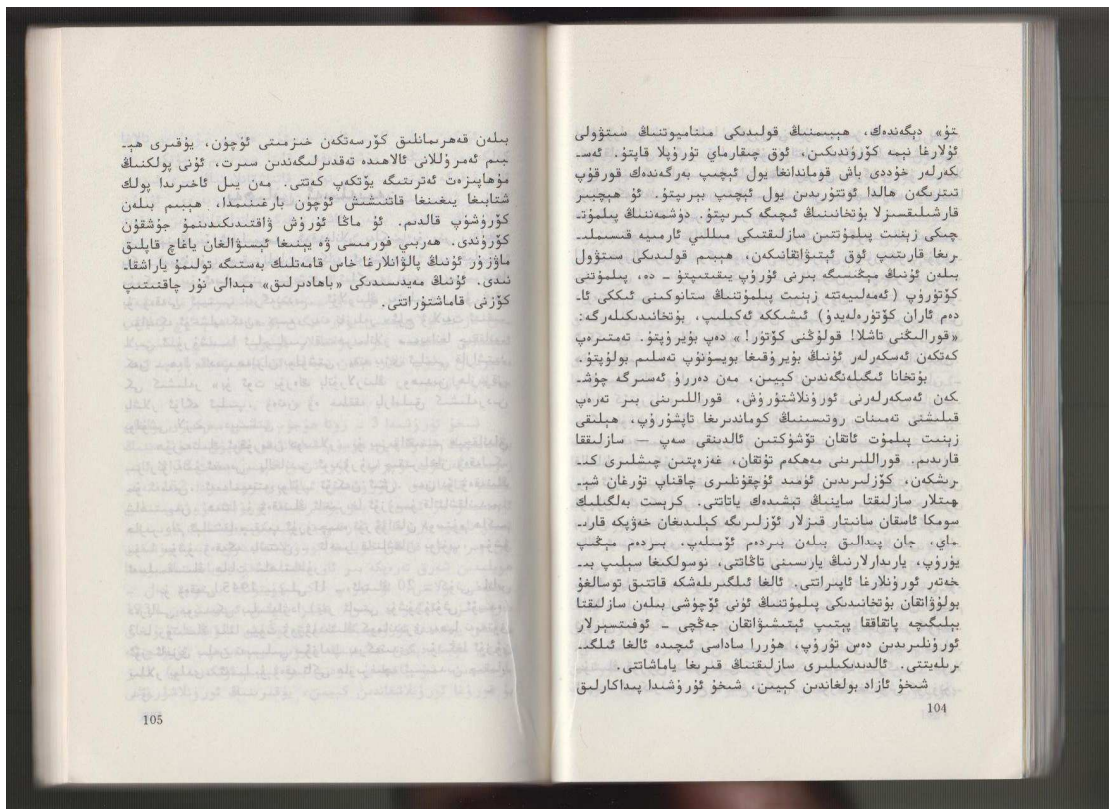 تۇ» دېگەندەك، ھېيىمنىڭ قولىدىكى مىنامىوتنىڭ سىتۋولى
ئۇلارغا نېمە كۆرۈندىكىن، ئوق چىقارماي تۇرۇپلا قاپتۇ. ئەس‍ـ
كەرلەر خۇددى باش قوماندانغا يول ئېچىپ بەرگەندەك قورقۇپ
تىترىگەن ھالدا ئوتتۇرىدىن يول ئېچىپ بېرىپتۇ. ئۇ ھېچبىر
قارشىلىقسىزلا بۇتخانىنىڭ ئىچىگە كىرىپتۇ. دۈشمەننىڭ پىلمۇت‍ـ
چىكى زېنىت پىلمۇتتىن سازلىقتىكى مىللىي ئارمىيە قىسىملى‍ـ
رىغا قارىتىپ ئوق ئېتىۋاتقانىكەن، ھېيىم قولىدىكى سىتۋول
بىلەن ئۇنىڭ مېڭىسىگە بىرنى ئۇرۇپ يىقىتىپتۇ ـ دە، پىلمۇتنى
كۆتۈرۈپ (ئەمەلىيەتتە زېنىت پىلمۇتنىڭ ستانوكىنى ئىككى ئا‍ـ
دەم ئاران كۆتۈرەلەيدۇ) ئىشىككە ئەكېلىپ، بۇتخانىدىكىلەرگە:
«قورالىڭنى تاشلا! قولۇڭنى كۆتۈر!» دەپ بۇيرۇپتۇ. تەمتىرەپ
كەتكەن ئەسكەرلەر ئۇنىڭ بۇيرۇقىغا بويسۇنۇپ تەسلىم بولۇپتۇ.
بۇتخانا ئىگىلەنگەندىن كېيىن، مەن دەررۇ ئەسىرگە چۈش‍ـ
كەن ئەسكەرلەرنى ئورۇنلاشتۇرۇش، قوراللىرىنى بىر تەرەپ
قىلىشنى تەمىنات روتىسىنىڭ كوماندىرىغا تاپشۇرۇپ، ھېلىقى
زېنىت پىلمۇت ئاتقان تۆشۈكتىن ئالدىنقى سەپ — سازلىققا
قارىدىم. قوراللىرىنى مەھكەم تۇتقان، غەزەپتىن چىشلىرى كى‍ـ
رىشكەن، كۆزلىرىدىن ئۈمىد ئۇچقۇنلىرى چاقناپ تۇرغان شې‍ـ
ھىتلار سازلىقتا ساينىڭ تېشىدەك ياتاتتى. كرېست بەلگىلىك
سومكا ئاسقان سانىتار قىزلار ئۆزلىرىگە كېلىدىغان خەۋپكە قارى‍ـ
ماي، جان پىدالىق بىلەن بىردەم ئۆمىلەپ، بىردەم مېڭىپ
يۈرۈپ، يارىدارلارنىڭ يارىسىنى تاڭاتتى، نوسولكىغا سېلىپ بى‍ـ
خەتەر ئورۇنلارغا ئاپىراتتى. ئالغا ئىلگىرىلەشكە قاتتىق توسالغۇ
بولۇۋاتقان بۇتخانىدىكى پىلمۇتنىڭ ئۈنى ئۆچۈشى بىلەن سازلىقتا
بېلىگىچە پاتقاققا پېتىپ ئېتىشىۋاتقان جەڭچى ـ ئوفىتسېرلار
ئورۇنلىرىدىن دەس تۇرۇپ، ھۇررا ساداسى ئىچىدە ئالغا ئىلگى‍ـ
رىلەيتتى. ئالدىدىكىلىرى سازلىقنىڭ قىرىغا ياماشاتتى.
شىخۇ ئازاد بولغاندىن كېيىن، شىخۇ ئۇرۇشىدا پىداكارلىق
104
بىلەن قەھرىمانلىق كۆرسەتكەن خىزمىتى ئۈچۈن، يۇقىرى ھې‍ـ
يىم ئەمرۇللانى ئالاھىدە تەقدىرلىگەندىن سىرت، ئۇنى پولكنىڭ
مۇھاپىزەت ئەترىتىگە يۆتكەپ كەتتى. مەن يىل ئاخىرىدا پولك
شتابىغا يىغىنغا قاتنىشىش ئۈچۈن بارغىنىمدا، ھېيىم بىلەن
كۆرۈشۈپ قالدىم. ئۇ ماڭا ئۇرۇش ۋاقتىدىكىدىنمۇ جۇشقۇن
كۆرۈندى. ھەربىي فورمىسى ۋە يېنىغا ئېسىۋالغان ياغاچ قاپلىق
ماۋزۇر ئۇنىڭ پالۋانلارغا خاس قامەتلىك بەستىگە تولىمۇ ياراشقا‍ـ
نىدى. ئۇنىڭ مەيدىسىدىكى «باھادىرلىق» مېدالى نۇر چاقنىتىپ
كۆزنى قاماشتۇراتتى.
105